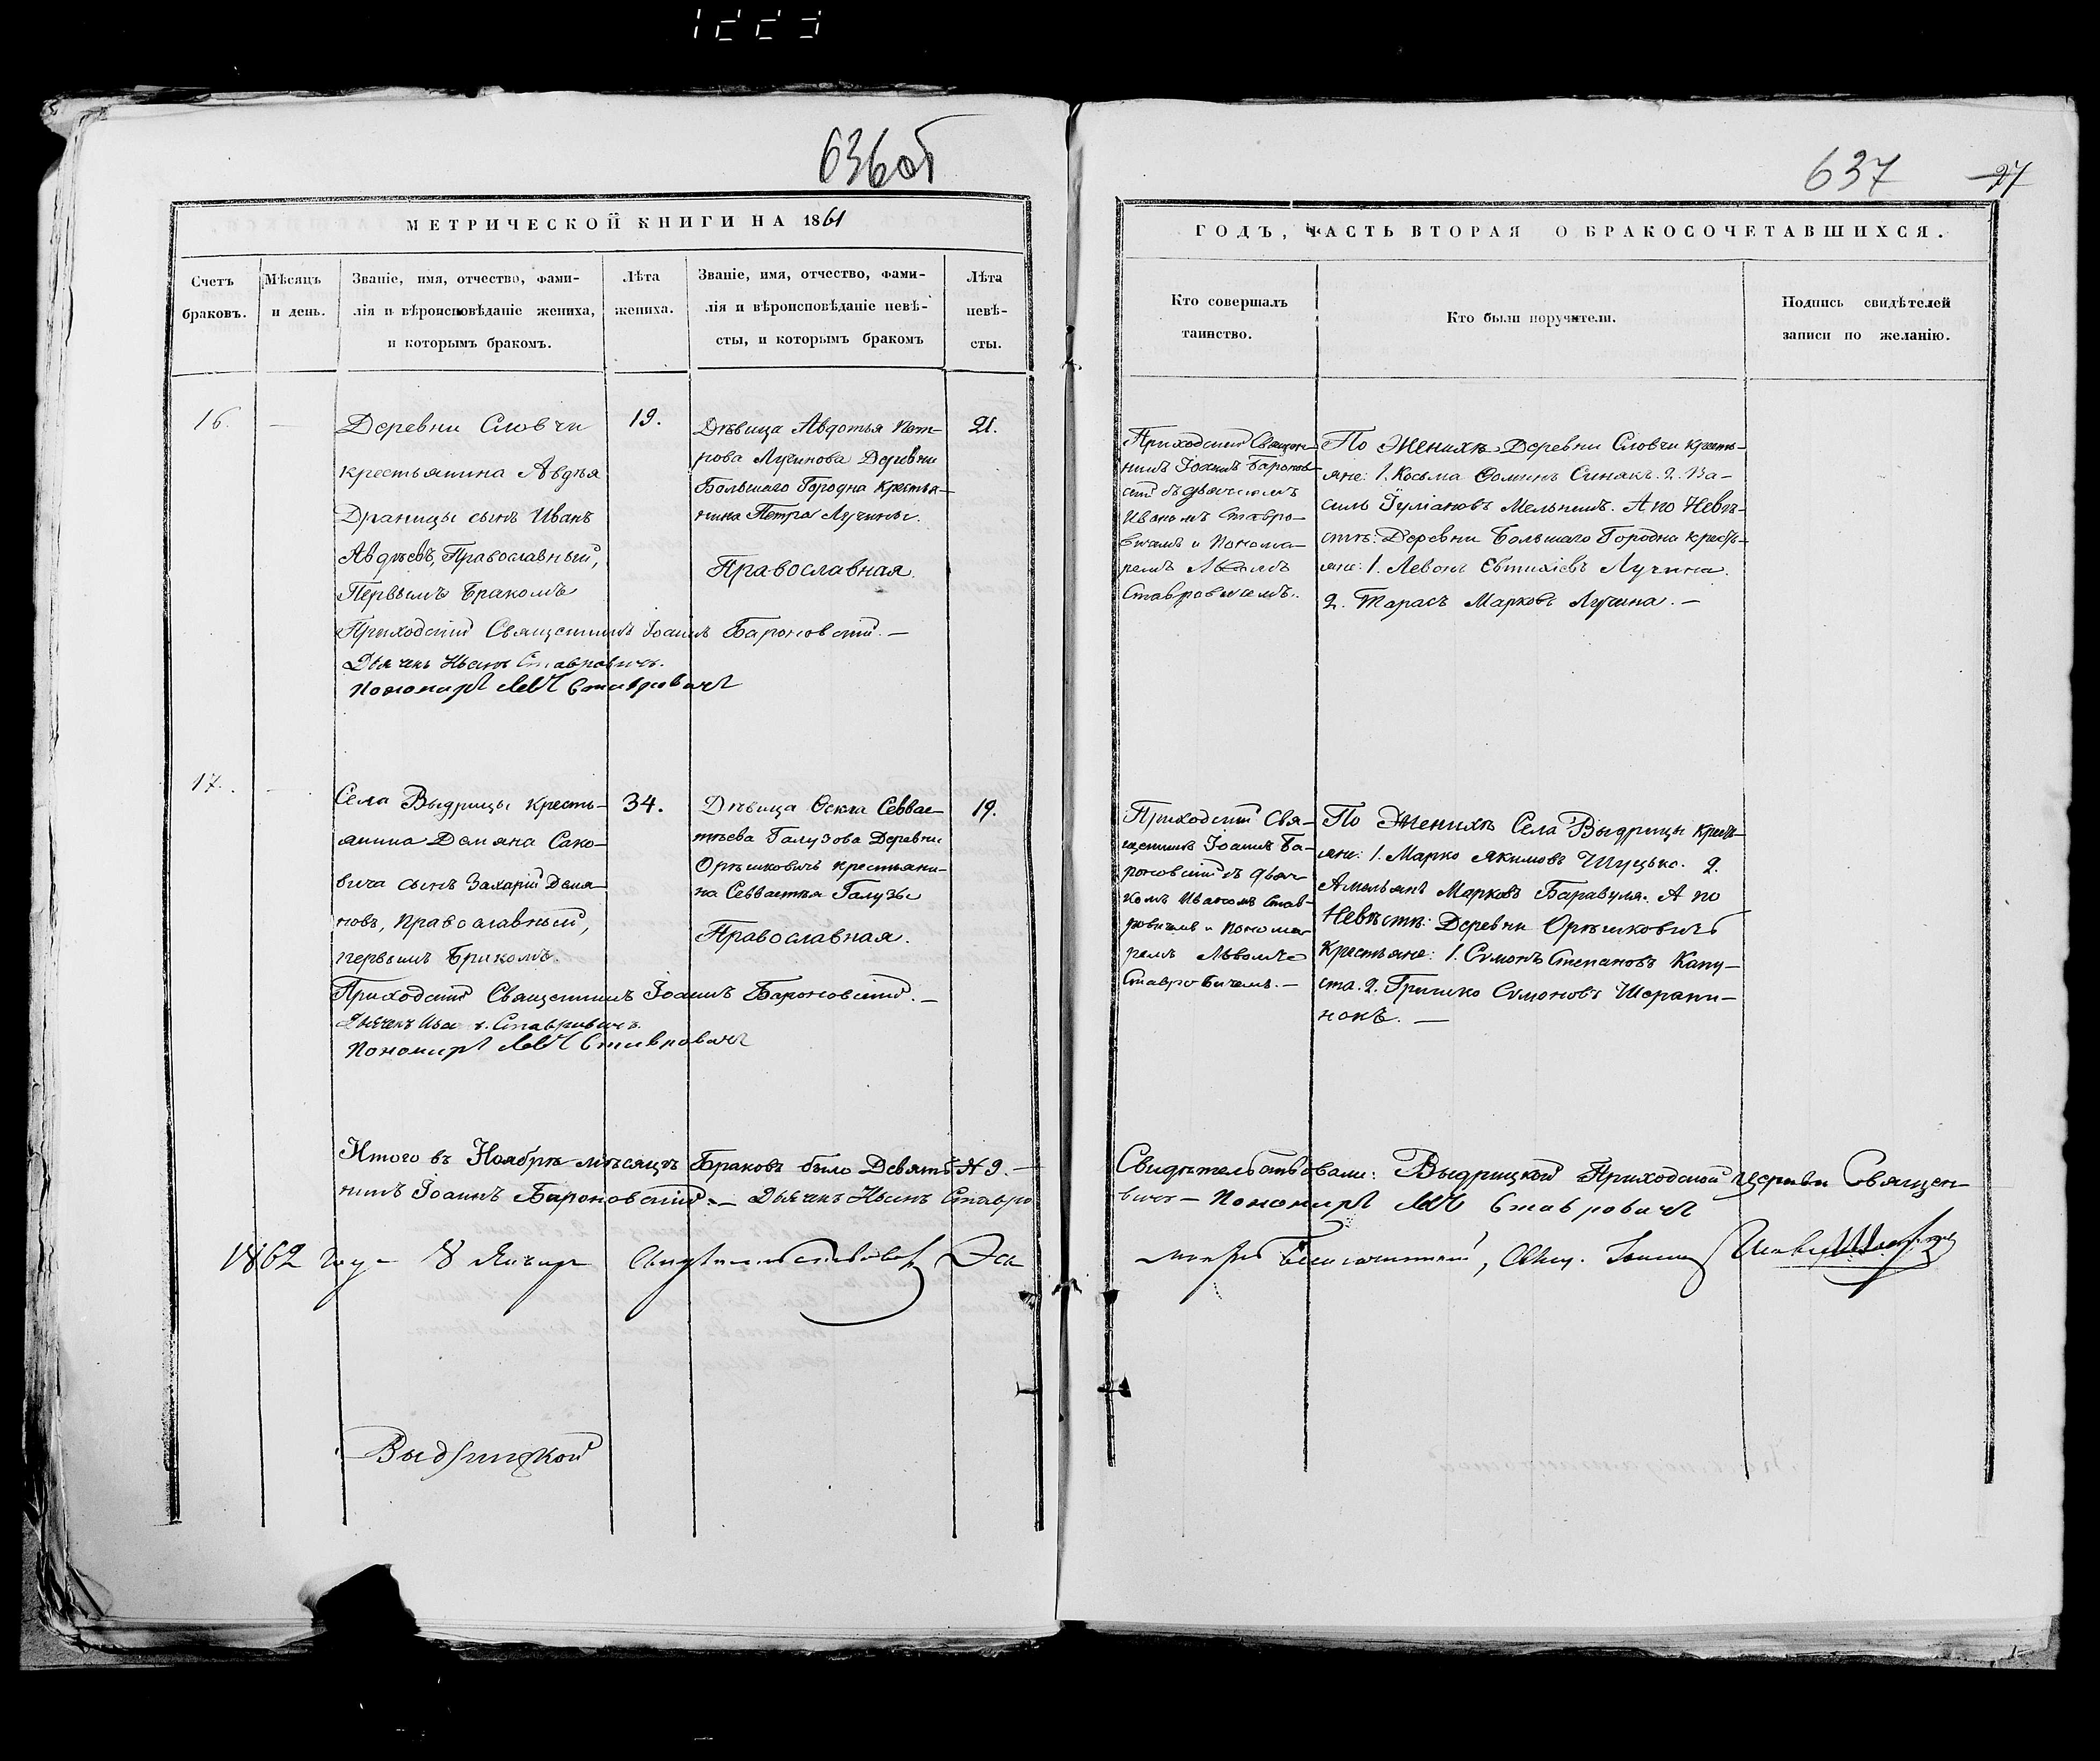 636об
МЕТРИЧЕСКОЙ КНИГИ НА 1861
Счетъ
браковъ.
Мѣсяцъ
и день.
Званіе, имя, отчество, фами-
лія и вѣроисповѣданіе жениха,
и которымъ бракомъ.
Лѣта
жениха.
Званіе, имя, отчество, фами-
лія и вѣроисповѣданіе невѣ-
сты, и которымъ бракомъ
Лѣта
невѣ-
сты.
16.
Деревни Словчи
крестьянина Авдѣя
Драницы сынъ Иванъ
Авдѣевъ, Православный,
Первымъ Бракомъ
19.
Дѣвица Авдотья Пет-
рова Лучинова Деревни
Большаго Городна Крестья-
нина Петра Лучины.
Православная.
21.
Приходскій Священникъ Іоаннъ Бароновскій. —
Дьячекъ Иванъ Ставровичъ.
Пономарь Левъ Ставровичъ
17.
Села Выдрицы кресть-
янина Демяна Сако-
вича сынъ Захарій Демя-
новъ, Православный,
первымъ Бракомъ.
34.
Дѣвица Ѳекла Севвас-
тѣева Галузова Деревни
Орѣшковичъ крестьяни-
на Севвастѣя Галузы
Православная.
19.
Приходскій Священникъ Іоаннъ Бароновскій. —
Дьячекъ Ива ъ. Ставровичъ.
Пономарь Левъ Ставровичъ
Итого въ Ноябрѣ мѣсяцѣ Браковъ было Девять № 9. —
никъ Іоаннъ Бароновскій. — Дьячекъ Иванъ Ставро
1862 года 8 Января Свидѣтельствовалъ
Выдрицкой
637
27
ГОДЪ, ЧАСТЬ ВТОРАЯ О БРАКОСОЧЕТАВШИХСЯ.
Кто совершалъ
таинство.
Кто были поручители.
Подпись свидѣтелей
записи по желанію.
Приходскій Священ-
никъ Іоаннъ Баронов-
скій съ дьячкомъ
Иваномъ Ставро-
вичемъ и Понома-
ремъ Львомъ
Ставровичемъ.
По Женихѣ Деревни Словчи кресть-
яне: 1. Косьма Ѳоминъ Синякъ. 2. Ва-
силь Іуліановъ Мельникъ. А по Невѣ-
стѣ: Деревни Большаго Городна кресть-
яне: 1. Левонъ Евтихіевъ Лучина.
2. Тарасъ Марковъ Лучина. —
Приходскій Свя-
щенникъ Іоаннъ Ба-
роновскій съ дьяч-
комъ Иваномъ Став-
ровичемъ и Понома-
ремъ Львомъ
Ставровичемъ. —
По Женихѣ Села Выдрицы кресть-
яне: 1. Марко Якимовъ Шуцько. 2.
Амельянъ Марковъ Баравуля. А по
Невѣстѣ: Деревни Орѣшковичъ
Крестьяне: 1. Сѵмонъ Степановъ Капу-
ста. 2. Гришко Сѵмоновъ Шерани-
нокъ. —
Свидѣтельствовали: Выдрицкой Приходской Церкви Священ-
вичъ — Пономарь Левъ Ставровичъ